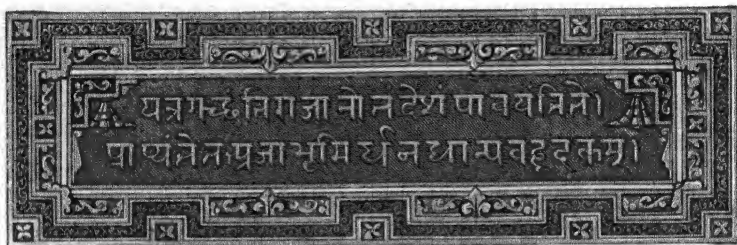 यत्र गच्छंति राजानो तं देशं पावयन्ति ते।
प्राप्यंते तत्प्रजा भूमि र्धनधान्यवहूदकम्।